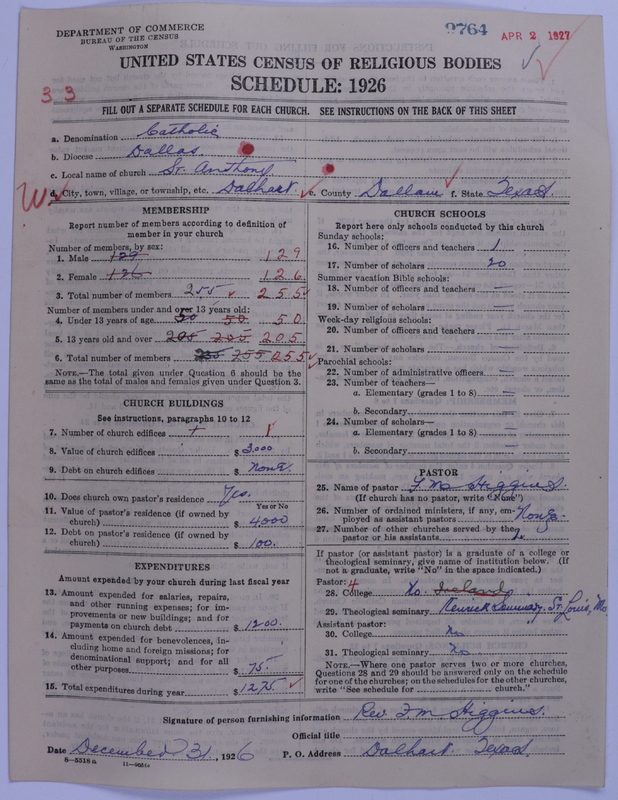 DEPARTMENT OF COMMERCE
BUREAU OF THE CENSUS
WASHINGTON
9764
APR 2 1927
UNITED STATES CENSUS OF RELIGIOUS BODIES
SCHEDULE: 1926
33
FILL OUT A SEPARATE SCHEDULE FOR EACH CHURCH. SEE INSTRUCTIONS ON THE BACK OF THIS SHEET
a. Denomination Catholic
b. Diocese Dallas
c. Local name of church St. Anthony
W
d. City, town, village, or township, etc. Dalhart e. County Dallam f. State Texas.
MEMBERSHIP
Report number of members according to definition of
member in your church
Number of members, by sex:
1. Male 129 129
2. Female 126 126
3. Total number of members 255 255
Number of members under and over 13 years old:
4. Under 13 years of age 50 50 50
5. 13 years old and over 205 205 205
6. Total number of members 255 255 255
NOTE.—The total given under Question 6 should be the
same as the total of males and females given under Question 3.
CHURCH BUILDINGS
See instructions, paragraphs 10 to 12
7. Number of church edifices 1
8. Value of church edifices $ 3,000
9. Debt on church edifices $ None
10. Does church own pastor's residence Yes.
Yes or No
11. Value of pastor's residence (if owned by
church) $ 4000
12. Debt on pastor's residence (if owned by
church) $ 100.
EXPENDITURES
Amount expended by your church during last fiscal year
13. Amount expended for salaries, repairs,
and other running expenses; for im-
provements or new buildings; and for
payments on church debt $ 1200.
14. Amount expended for benevolences, in-
cluding home and foreign missions; for
denominational support; and for all
other purposes $ 75.
15. Total expenditures during year $ 1275
CHURCH SCHOOLS
Report here only schools conducted by this church
Sunday schools:
16. Number of officers and teachers 1
17. Number of scholars 20
Summer vacation Bible schools:
18. Number of officers and teachers —
19. Number of scholars —
Week-day religious schools:
20. Number of officers and teachers —
21. Number of scholars —
Parochial schools:
22. Number of administrative officers —
23. Number of teachers—
a. Elementary (grades 1 to 8) —
b. Secondary —
24. Number of scholars—
a. Elementary (grades 1 to 8) —
b. Secondary —
PASTOR
25. Name of pastor F. M. Higgins
(If church has no pastor, write "None")
26. Number of ordained ministers, if any, em-
ployed as assistant pastors None.
27. Number of other churches served by the
pastor or his assistants 2
If pastor (or assistant pastor) is a graduate of a college or
theological seminary, give name of institution below. (If
not a graduate, write "No" in the space indicated.)
Pastor: 4
28. College No. Ireland
29. Theological seminary Kenrick Seminary, St. Louis, Mo.
Assistant pastor:
30. College No
31. Theological seminary No
NOTE.—Where one pastor serves two or more churches,
Questions 28 and 29 should be answered only on the schedule
for one of the churches; on the schedules for the other churches,
write "See schedule for church."
Signature of person furnishing information Rev. F M Higgins.
Official title
Date December 31, 1926 P. O. Address Dalhart Texas
8—5518a 11—9051a